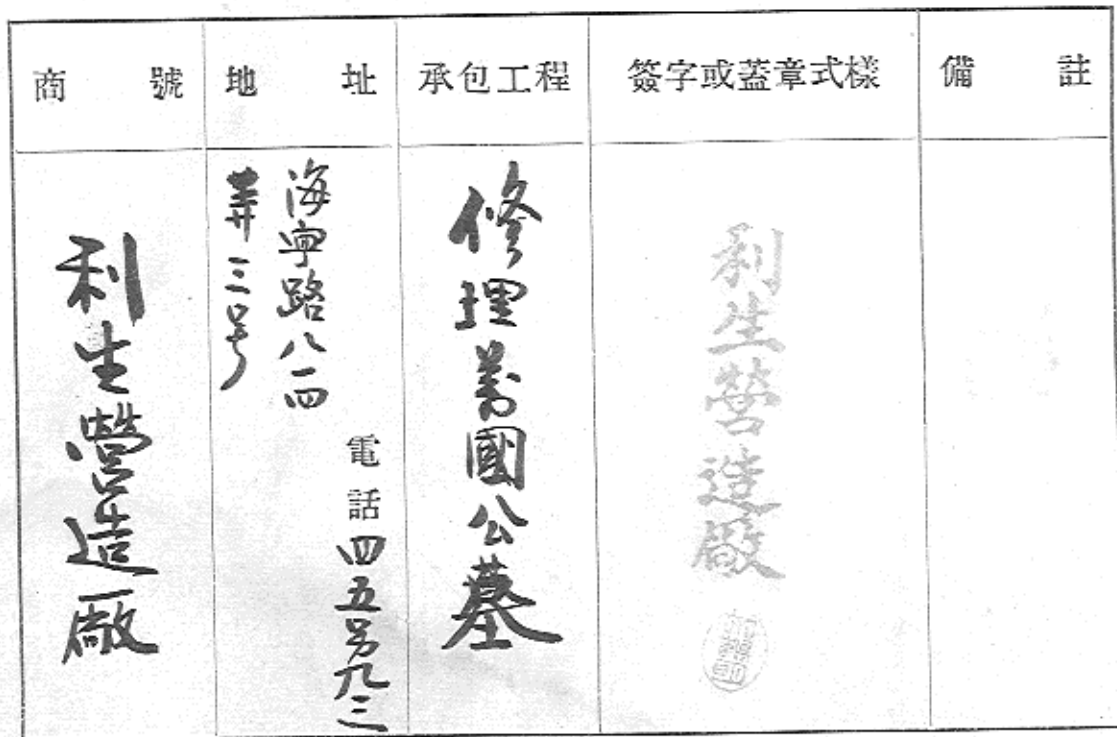 商號
地址
承包工程
簽字或蓋章式樣
備註
利生營造廠
海寧路八四
弄三号
電話四五另九三
修理萬國公墓
利生營造廠